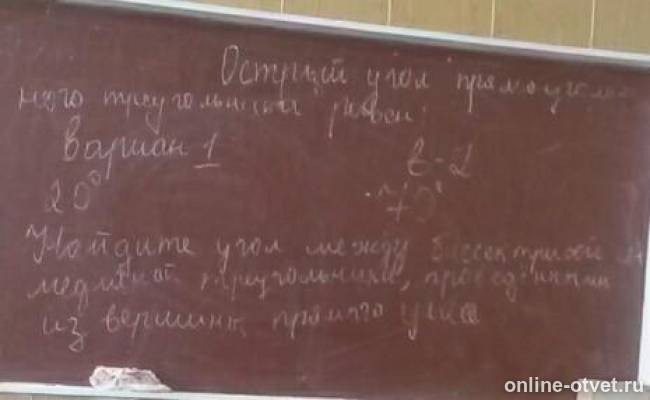 Острый угол прямоуголь
ного треугольника равен:
Вариан 1 в-2
20° 70°
Найдите угол между биссектрисой и
медианой треугольника, проведёнными
из вершины прямого угла
online-otvet.ru